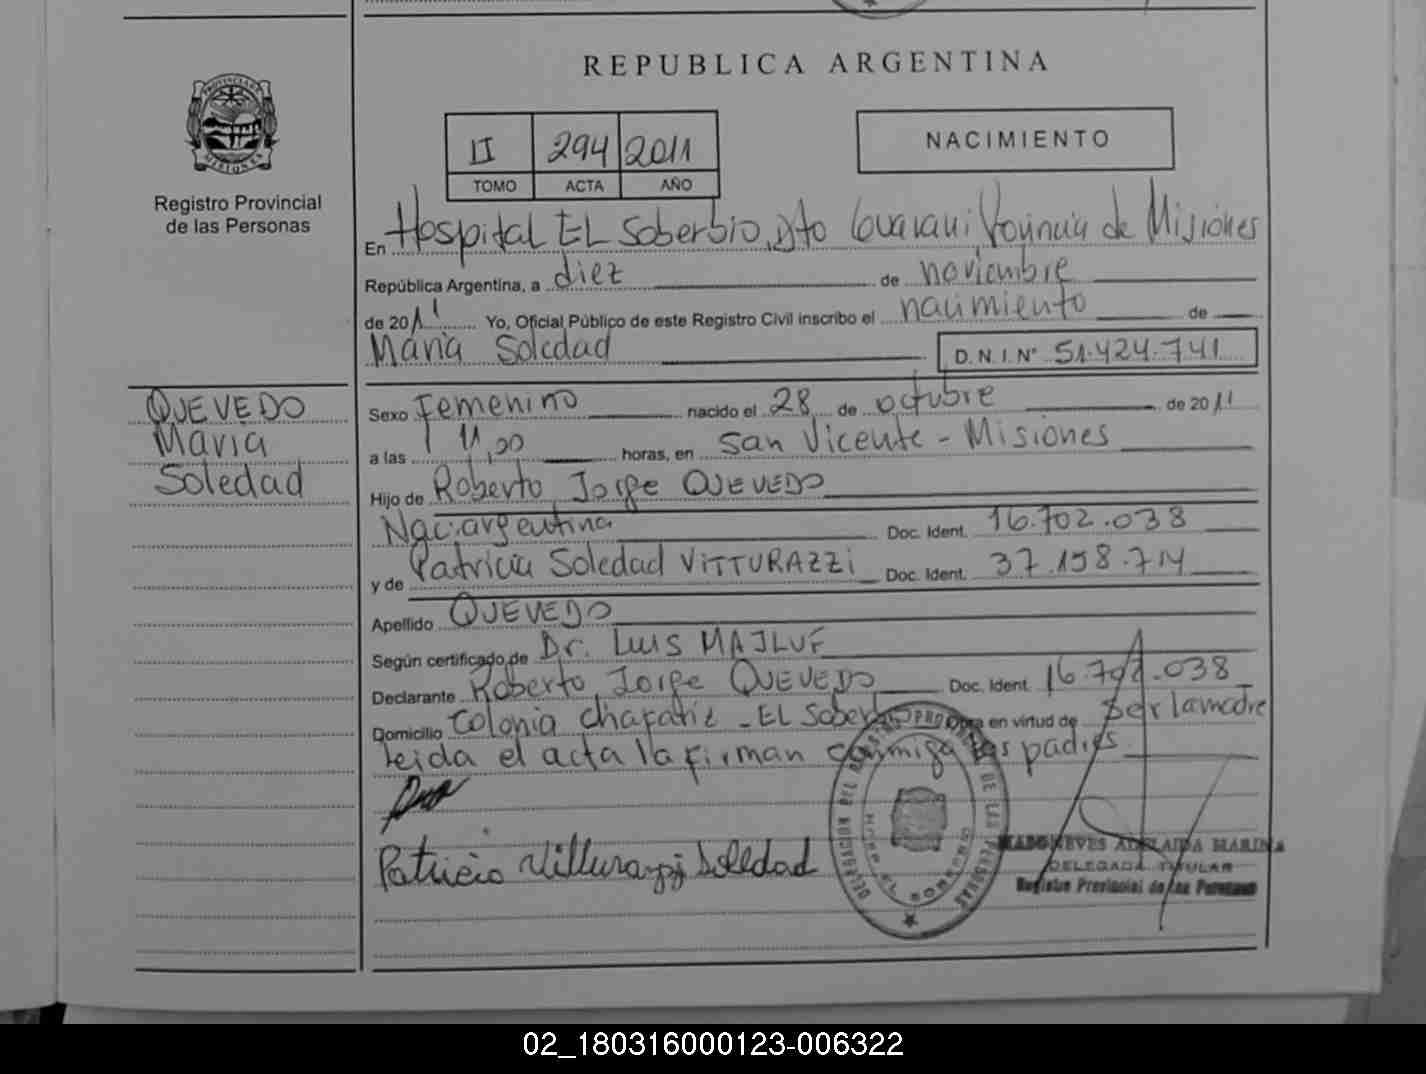 REPUBLICA ARGENTINA
PROVINCIA DE MISIONES
Registro Provincial
de las Personas
II 294 2011
TOMO ACTA AÑO
NACIMIENTO
En Hospital EL Soberbio, Dto Guarani Provincia de Misiones
República Argentina, a diez de noviembre
de 2011 Yo, Oficial Público de este Registro Civil inscribo el nacimiento de
Maria Soledad D.N.I. Nº 51.424.741
QUEVEDO
Maria
Soledad
Sexo Femenino nacido el 28 de octubre de 2011
a las 11,00 horas, en San Vicente - Misiones
Hijo de Roberto Jorge QUEVEDO
Nac. argentina Doc. Ident. 16.702.038
y de Patricia Soledad VITTURAZZI Doc. Ident. 37.158.714
Apellido QUEVEDO
Según certificado de Dr. Luis MAJLUF
Declarante Roberto Jorge QUEVEDO Doc. Ident. 16.702.038
Domicilio Colonia Chafariz - EL Soberbio Obra en virtud de ser la madre
leida el acta la firman conmigo los padres
Patricia Vitturazzi Soledad
DELEGACION DEL REGISTRO PROVINCIAL DE LAS PERSONAS
ADELAIDA MARINA
DELEGADA TITULAR
Registro Provincial de las Personas
02_180316000123-006322